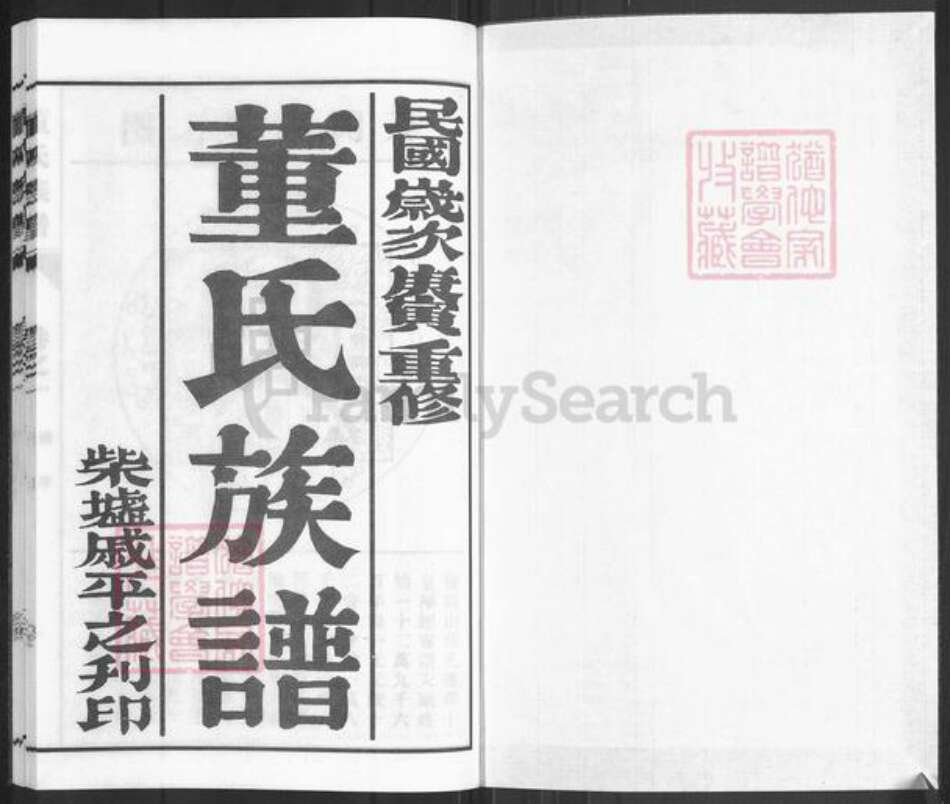 民國歲次重修
董氏族譜
柴墟戚平之刊印
猶他家
譜學會
收藏
FamilySearch